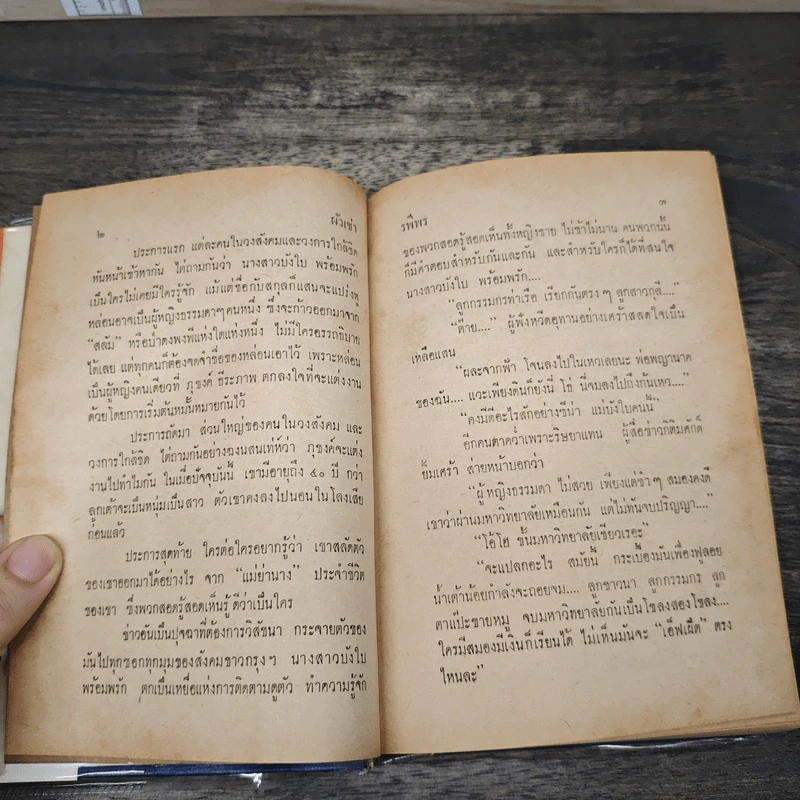 ๒
ผัวเช่า
ประการแรก แต่ละคนในวงสังคมและวงการใกล้ชิด
หันหน้าเข้าหากัน ไต่ถามกันว่า นางสาวบังใบ พร้อมพรัก
เป็นใครไม่เคยมีใครรู้จัก แม้แต่ชื่อกับสกุลก็แสนจะแปร่งหู
หล่อนอาจเป็นผู้หญิงธรรมดาๆคนหนึ่ง ซึ่งจะก้าวออกมาจาก
“สลัม” หรือป่าดงพงพีแห่งใดแห่งหนึ่ง ไม่มีใครอรรถาธิบาย
ได้เลย แต่ทุกคนก็ต้องจดจำชื่อของหล่อนเอาไว้ เพราะหล่อน
เป็นผู้หญิงคนเดียวที่ ภุชงค์ ธีระภาพ ตกลงใจที่จะแต่งงาน
ด้วยโดยการเริ่มต้นหมั้นหมายกันไว้
ประการถัดมา ส่วนใหญ่ของคนในวงสังคม และ
วงการใกล้ชิด ไต่ถามกันอย่างฉงนสนเท่ห์ว่า ภุชงค์จะแต่ง
งานไปทำไมกัน ในเมื่อปัจจุบันนี้ เขามีอายุถึง ๔๐ ปี กว่า
ลูกเต้าจะเป็นหนุ่มเป็นสาว ตัวเขาคงลงไปนอนในโลงเสีย
ก่อนแล้ว
ประการสุดท้าย ใครต่อใครอยากรู้ว่า เขาสลัดตัว
ของเขาออกมาได้อย่างไร จาก “แม่ย่านาง” ประจำชีวิต
ของเขา ซึ่งพวกสอดรู้สอดเห็นรู้ดีว่าเป็นใคร
ข่าวอันเป็นปุจฉาที่ต้องการวิสัชนา กระจายตัวของ
มันไปทุกซอกทุกมุมของสังคมชาวกรุงๆ นางสาวบังใบ
พร้อมพรัก ตกเป็นเหยื่อแห่งการติดตามดูตัว ทำความรู้จัก
รพีพร
๓
ของพวกสอดรู้สอดเห็นทั้งหญิงชาย ไม่ช้าไม่นาน คนพวกนั้น
ก็มีคำตอบสำหรับกันและกัน และสำหรับใครก็ได้ที่สนใจ
นางสาวบังใบ พร้อมพรัก....
“ลูกกรรมกรท่าเรือ เรียกกันตรงๆ ลูกสาวกุลี....”
“ต๊าย....” ผู้ฟังหวีดอุทานอย่างเศร้าสลดใจเป็น
เหลือแสน
“ผละจากฟ้า โจนลงไปในเหวเลยนะ พ่อพญานาค
ของฉัน.... แวะเพียงดินก็ยังนี่ โธ่ นี่จมลงไปถึงก้นเหว....”
“คงมีดีอะไรสักอย่างซีน่า แม่บังใบคนนี้”
อีกคนตาคว่ำเพราะริษยาแทน ผู้สื่อข่าวกิติมศักดิ์
ยิ้มเศร้า ส่ายหน้าบอกว่า
“ผู้หญิงธรรมดา ไม่สวย เพียงแต่ขำๆ สมองคงดี
เขาว่าผ่านมหาวิทยาลัยเหมือนกัน แต่ไม่ทันจบปริญญา....”
“โอ้โฮ ขั้นมหาวิทยาลัยเชียวเรอะ”
“จะแปลกอะไร สมัยนี้ กระเบื้องมันเฟื่องฟูลอย
น้ำเต้าน้อยกำลังจะถอยจม.... ลูกชาวนา ลูกกรรมกร ลูก
ตาแป๊ะขายหมู จบมหาวิทยาลัยกันเป็นโขลงสองโขลง....
ใครมีสมองมีเงินก็เรียนได้ ไม่เห็นมันจะ “เอ็ฟเฝ็ต” ตรง
ไหนละ”